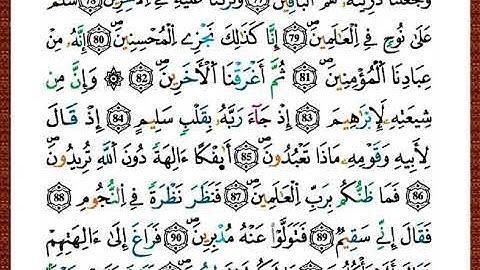 وَجَعَلْنَا ذُرِّيَّتَهُۥ هُمُ ٱلْبَاقِينَ ۝٧٧ وَتَرَكْنَا عَلَيْهِ فِى ٱلْءَاخِرِينَ ۝٧٨ سَلَٰمٌ
عَلَىٰ نُوحٍ فِى ٱلْعَٰلَمِينَ ۝٧٩ إِنَّا كَذَٰلِكَ نَجْزِى ٱلْمُحْسِنِينَ ۝٨٠ إِنَّهُۥ مِنْ
عِبَادِنَا ٱلْمُؤْمِنِينَ ۝٨١ ثُمَّ أَغْرَقْنَا ٱلْأَخَرِينَ ۝٨٢ ۞ وَإِنَّ مِن
شِيعَتِهِۦ لَإِبْرَٰهِيمَ ۝٨٣ إِذْ جَآءَ رَبَّهُۥ بِقَلْبٍ سَلِيمٍ ۝٨٤ إِذْ قَالَ
لِأَبِيهِ وَقَوْمِهِۦ مَاذَا تَعْبُدُونَ ۝٨٥ أَئِفْكًا ءَالِهَةً دُونَ ٱللَّهِ تُرِيدُونَ
۝٨٦ فَمَا ظَنُّكُم بِرَبِّ ٱلْعَٰلَمِينَ ۝٨٧ فَنَظَرَ نَظْرَةً فِى ٱلنُّجُومِ ۝٨٨
فَقَالَ إِنِّى سَقِيمٌ ۝٨٩ فَتَوَلَّوْا۟ عَنْهُ مُدْبِرِينَ ۝٩٠ فَرَاغَ إِلَىٰٓ ءَالِهَتِهِمْ